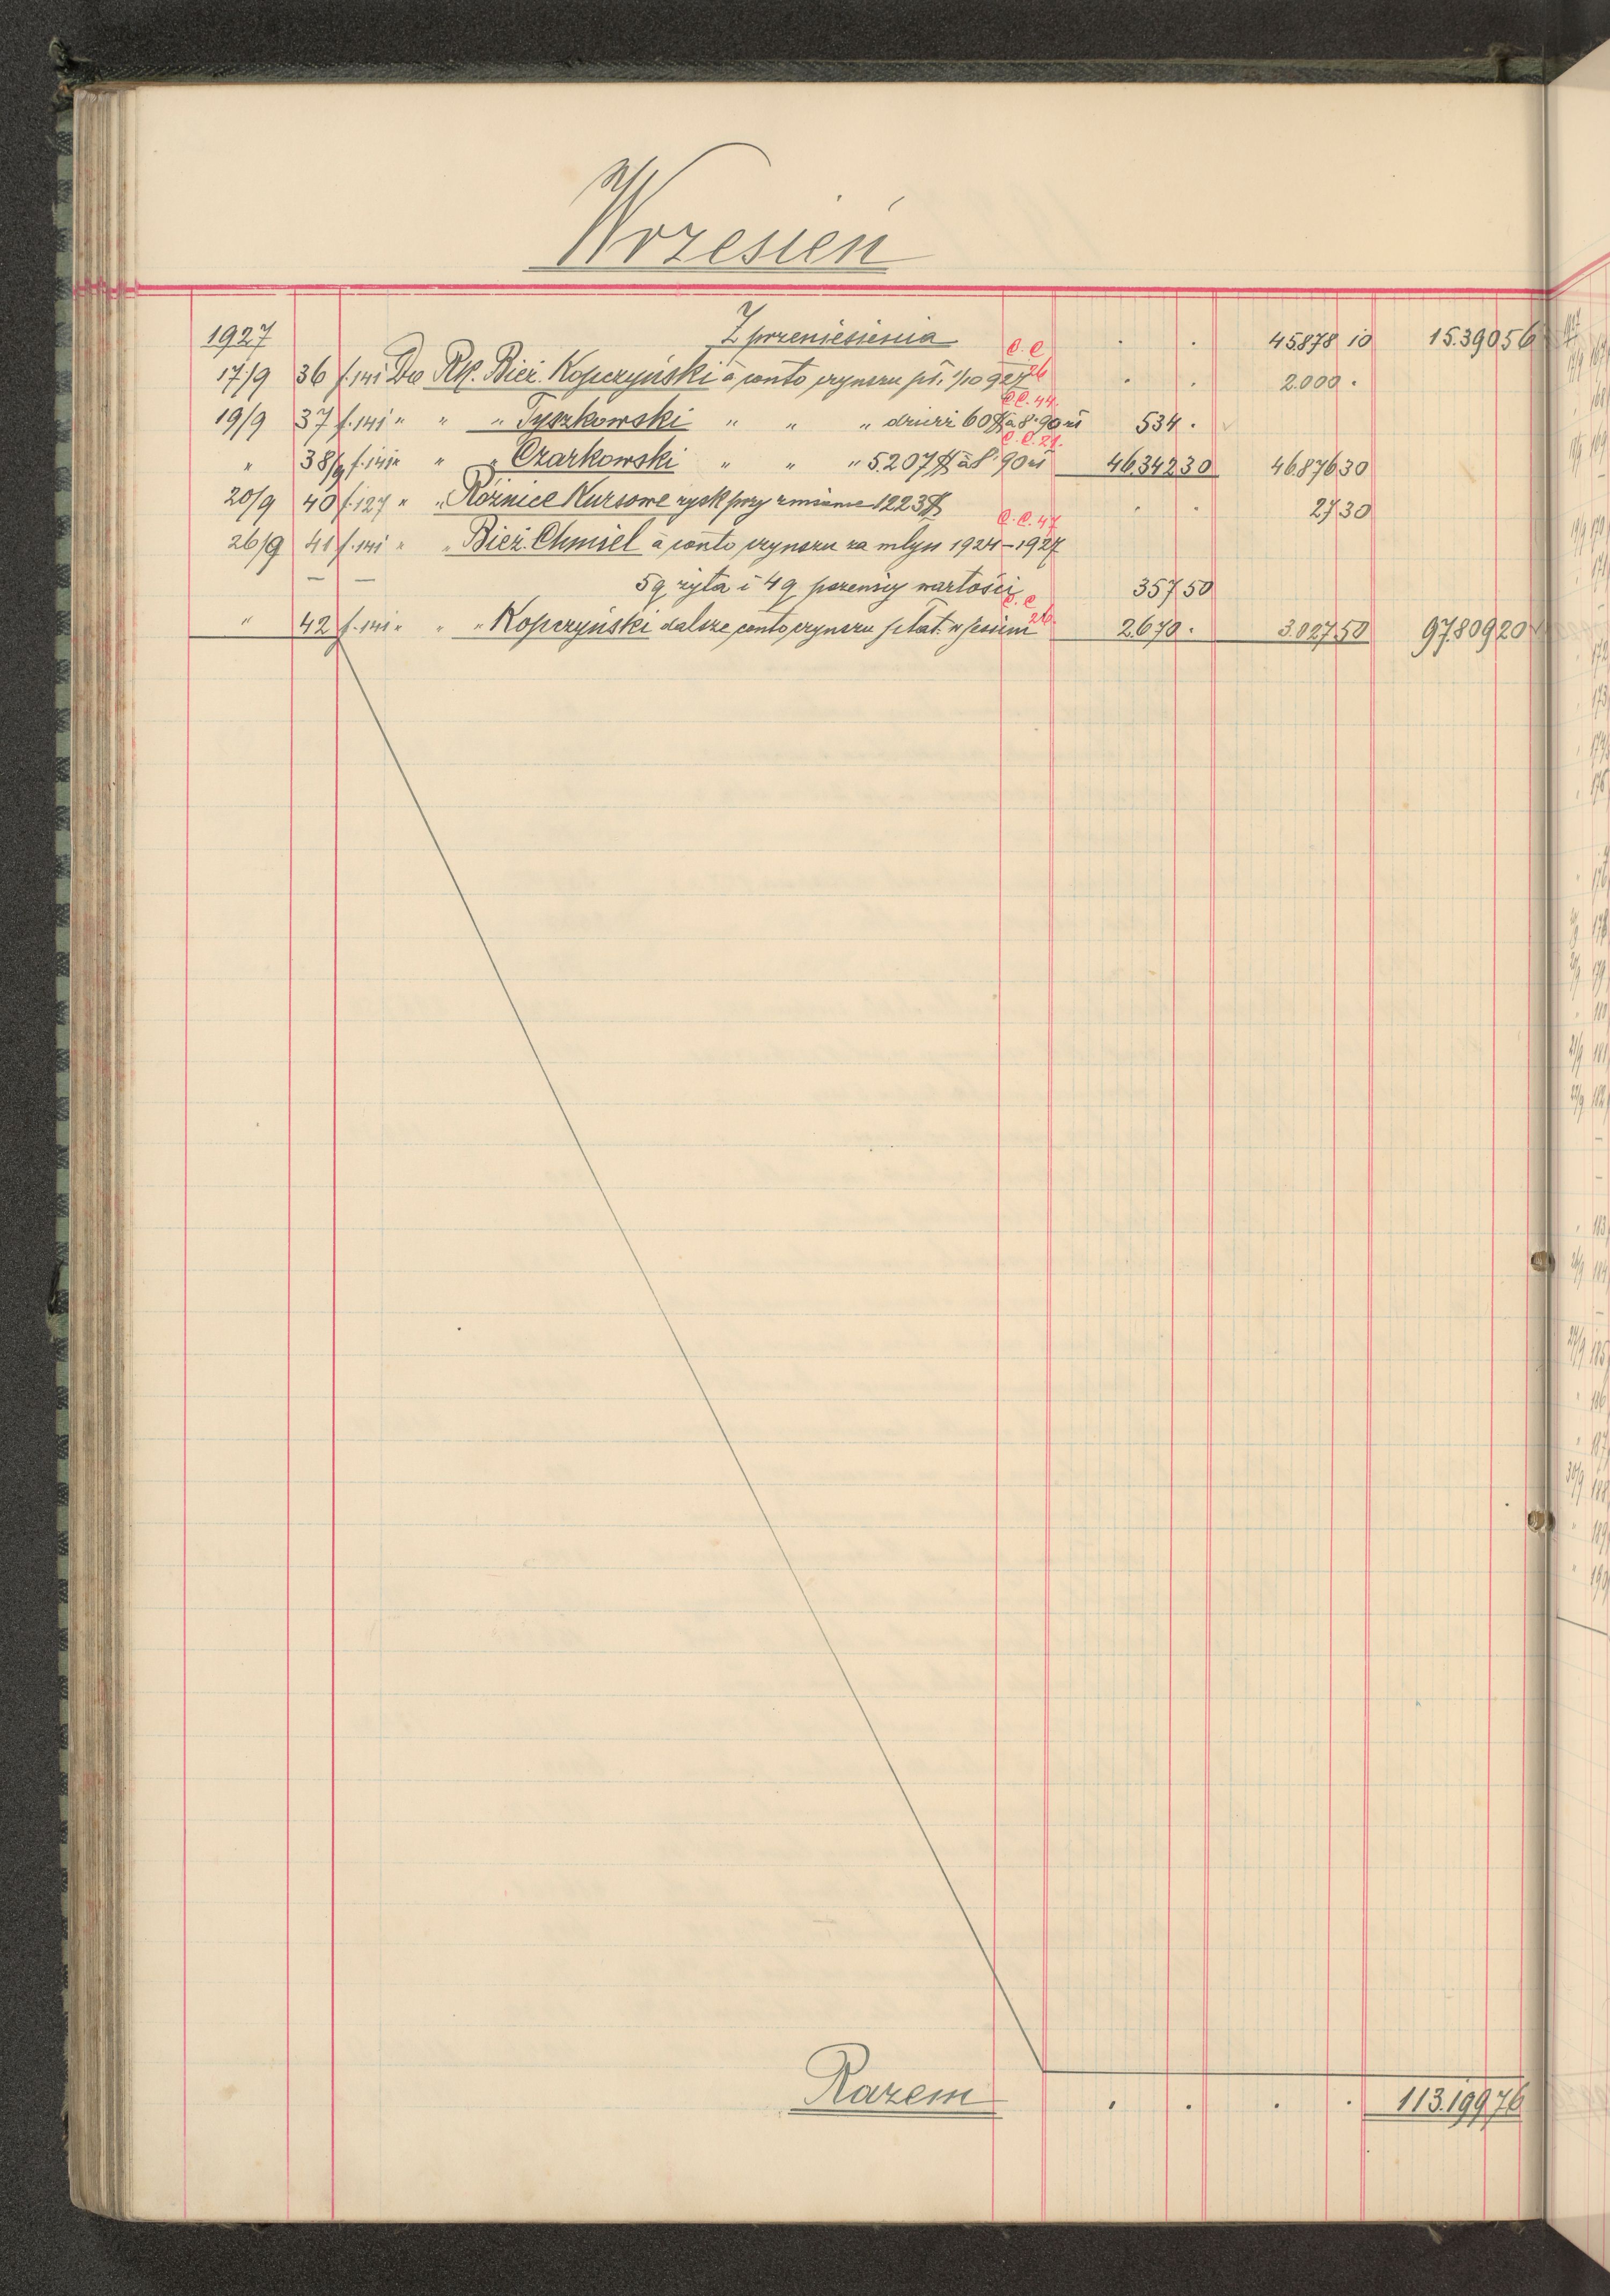 Wrzesień
1927 Z przeniesienia 45878 10 15.390 56
C.C. 26
17/9 36 f. 141 Do Rk. Bież. Kopczyński à conto czynszu pł. 1/10 927 2.000 .
C.C. 44.
19/9 37 f. 141 " " " Tyszkowski " " " 60 $ à 8·90 zł 534 .
C.C. 21.
" 38/9 f. 141 " " " Czarkowski " " " 5.207 $ à 8·90 zł 46.342 30 46.876 30
20/9 40 f. 127 " " Różnice Kursowe zysk przy zmianie 1223 $ 27 30
C.C. 47
26/9 41 f. 141 " " Bież. Chmiel à conto czynszu za młyn 1924–1927
— — 5 q żyta i 4 q pszenicy wartości 357 50
C.C. 26.
" 42 f. 141 " " " Kopczyński dalsze conto czynszu 2.670 . 3.027 50 97.809 20
Razem . . . . 113.199 76